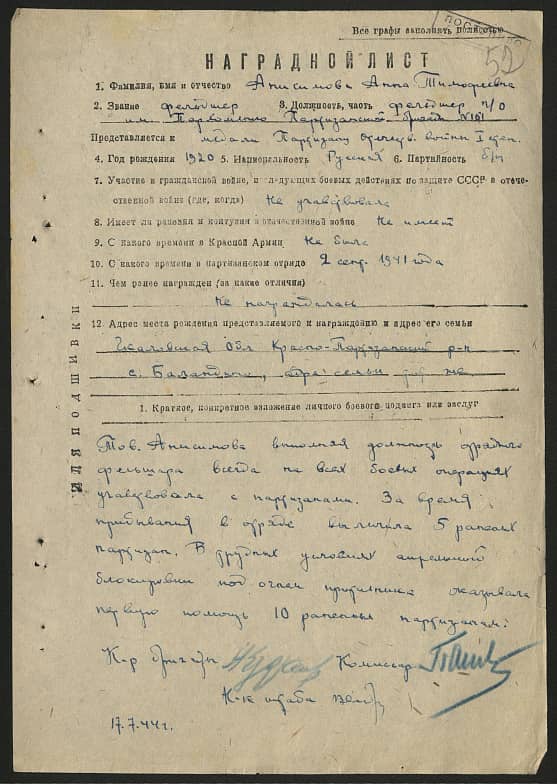 Все графы заполнять полностью
52
НАГРАДНОЙ ЛИСТ
1. Фамилия, имя и отчество Анисимова Анна Тимофеевна
2. Звание фельдшер 3. Должность, часть фельдшер п/о
им. Пархоменко Партизанской бригады № 161
Представляется к медали Партизану Отечеств. войны I степ.
4. Год рождения 1920 5. Национальность Русская 6. Партийность б/п
7. Участие в гражданской войне, последующих боевых действиях по защите СССР и отече-
ственной войне (где, когда) Не участвовала
8. Имеет ли ранения и контузии в отечественной войне Не имеет
9. С какого времени в Красной Армии Не была
10. С какого времени в партизанском отряде 2 сент. 1941 года
11. Чем ранее награжден (за какие отличия)
Не награждалась
12. Адрес места рождения представляемого к награждению и адрес его семьи
Чкаловская обл Красно-Партизанский р-н
с. адрес семьи
1. Краткое, конкретное изложение личного боевого подвига или заслуг
ДЛЯ ПОДШИВКИ
Тов. Анисимова выполняя должность отрядного
фельшара всегда на всех боевых операциях
учавствовала с партизанами. За время
прибывания в отряде вылечила 5 раненых
партизан. В трудных условиях апрельской
блокировки под огнем противника оказывала
первую помощь 10 раненым партизанам.
К-р бригады Комиссар
Н-к штаба
17.7.44г.